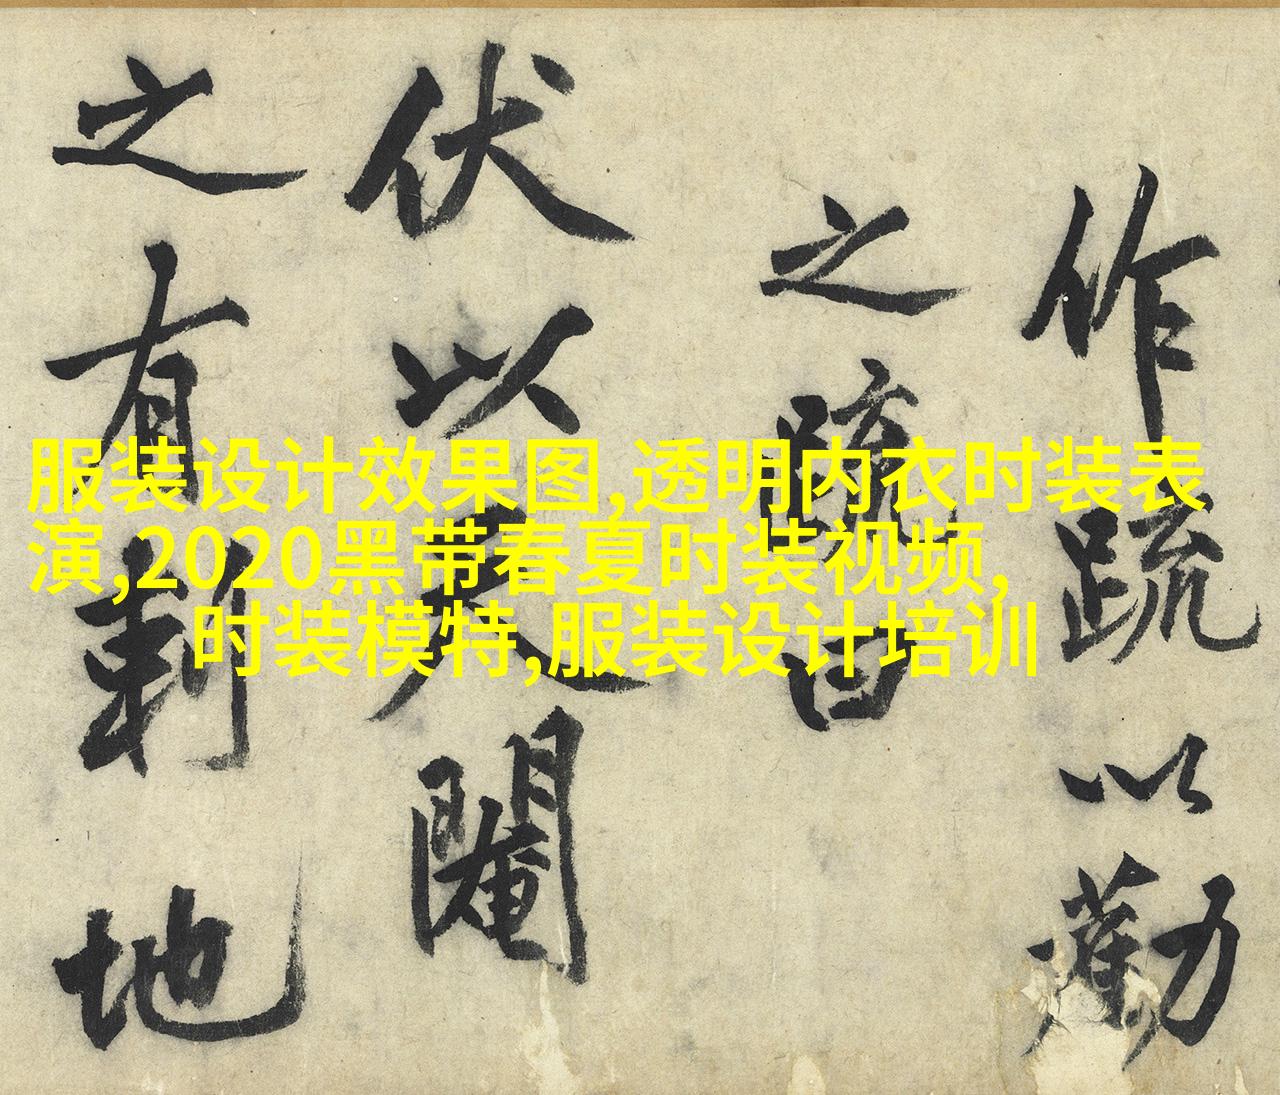 服装设计效果图,透明内衣时装表
演,2020黑带春夏时装视频,
时装模特,服装设计培训
作疏以勸
之疏曰
伏以天閹
之有刺地